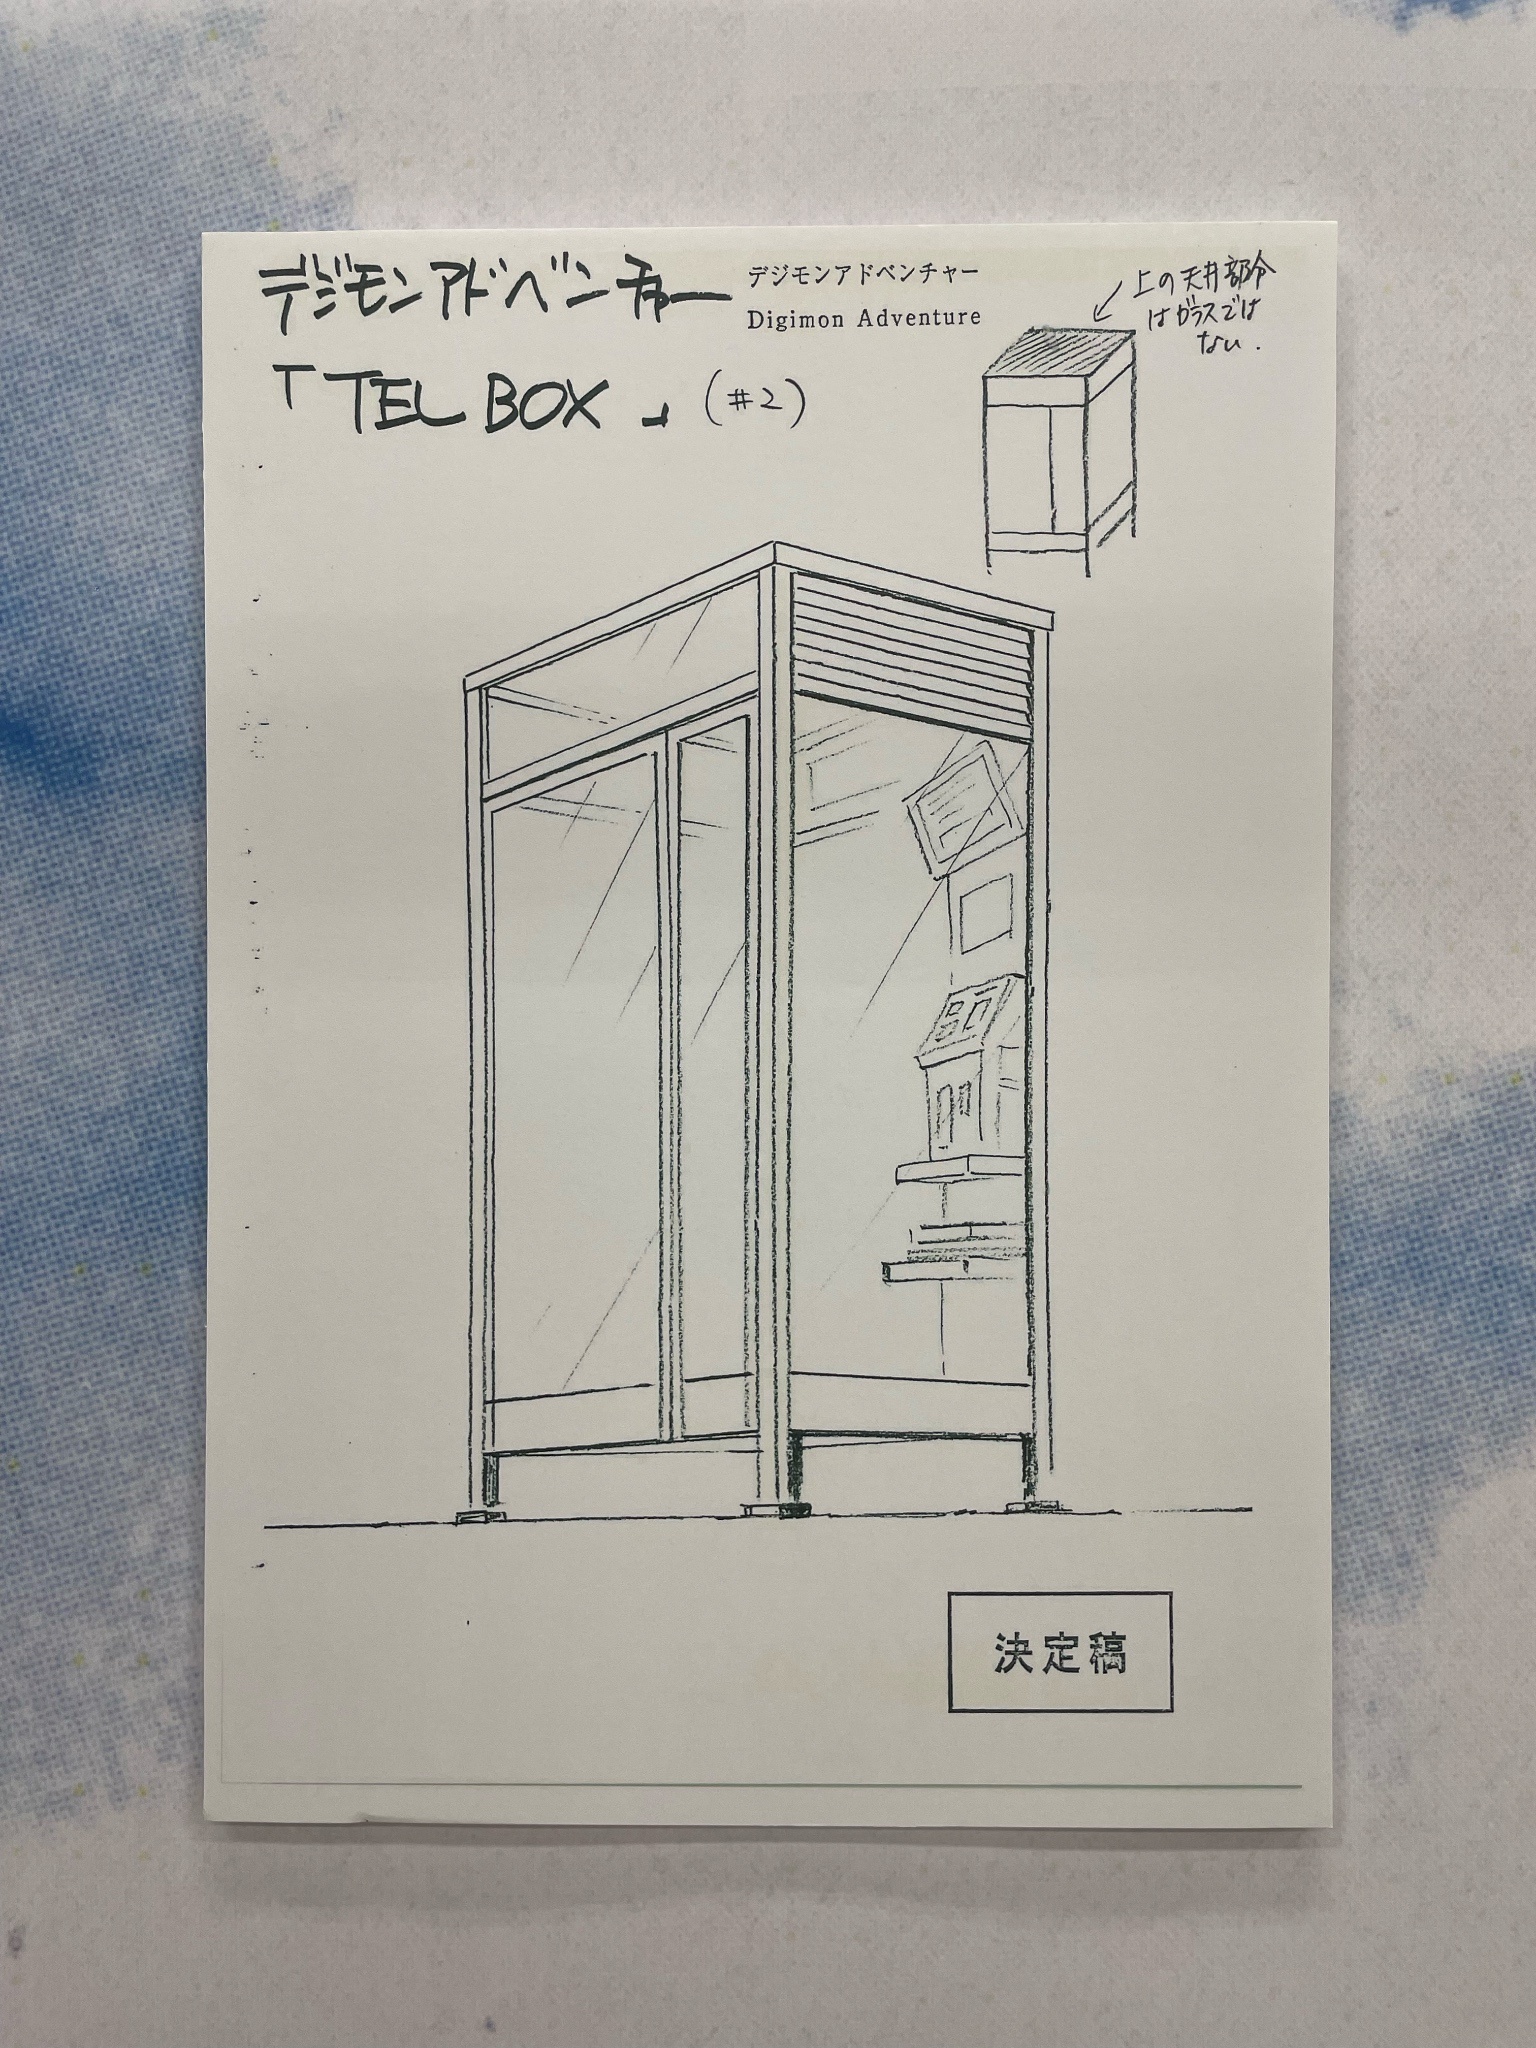 デジモンアドベンチャー
デジモンアドベンチャー
Digimon Adventure
「TEL BOX」(#2)
上の天井部分
はガラスでは
ない.
決定稿